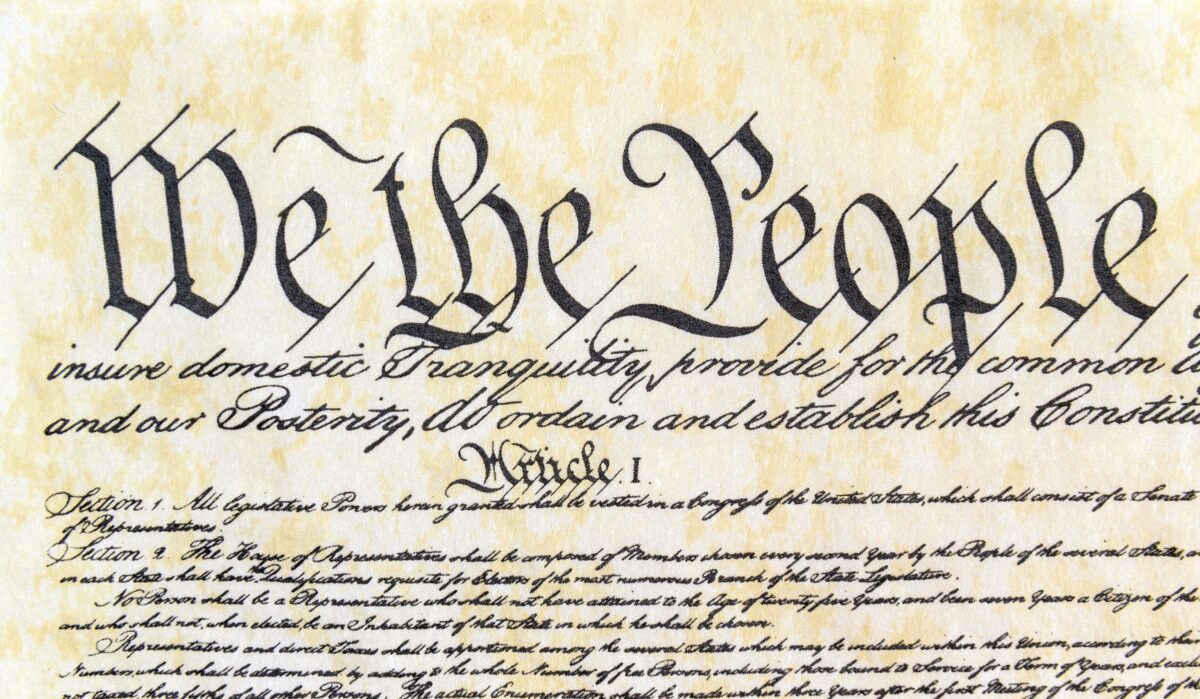 We the People
insure domestic Tranquility, provide for the common
and our Posterity, do ordain and establish this Constitu
Article. I.
Section. 1. All legislative Powers herein granted shall be vested in a Congress of the United States, which shall consist of a Senate
of Representatives.
Section. 2. The House of Representatives shall be composed of Members chosen every second Year by the People of the several States,
in each State shall have the Qualifications requisite for Electors of the most numerous Branch of the State Legislature.
No Person shall be a Representative who shall not have attained to the Age of twenty five Years, and been seven Years a Citizen of the
and who shall not, when elected, be an Inhabitant of that State in which he shall be chosen.
Representatives and direct Taxes shall be apportioned among the several States which may be included within this Union, according to their
Numbers, which shall be determined by adding to the whole Number of free Persons, including those bound to Service for a Term of Years, and
not taxed, three fifths of all other Persons. The actual Enumeration shall be made within three Years after the first Meeting of the Congress of the